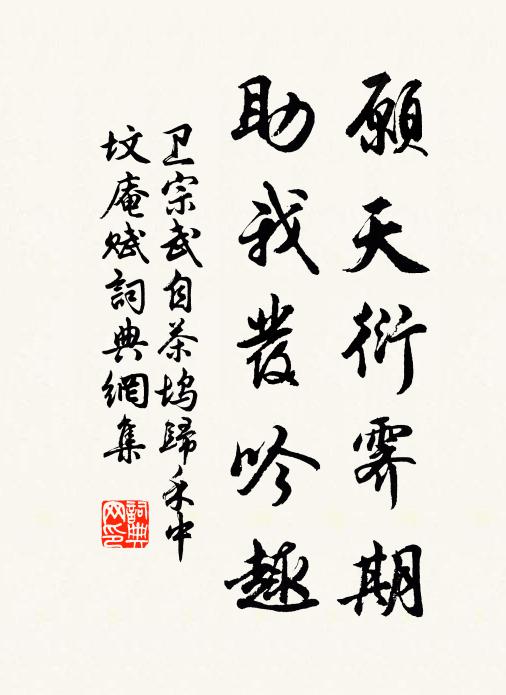 願天衍霽期
助我發吟趣
卫宗武自茶塢歸禾中
坟庵赋詞典網集
詞典网印